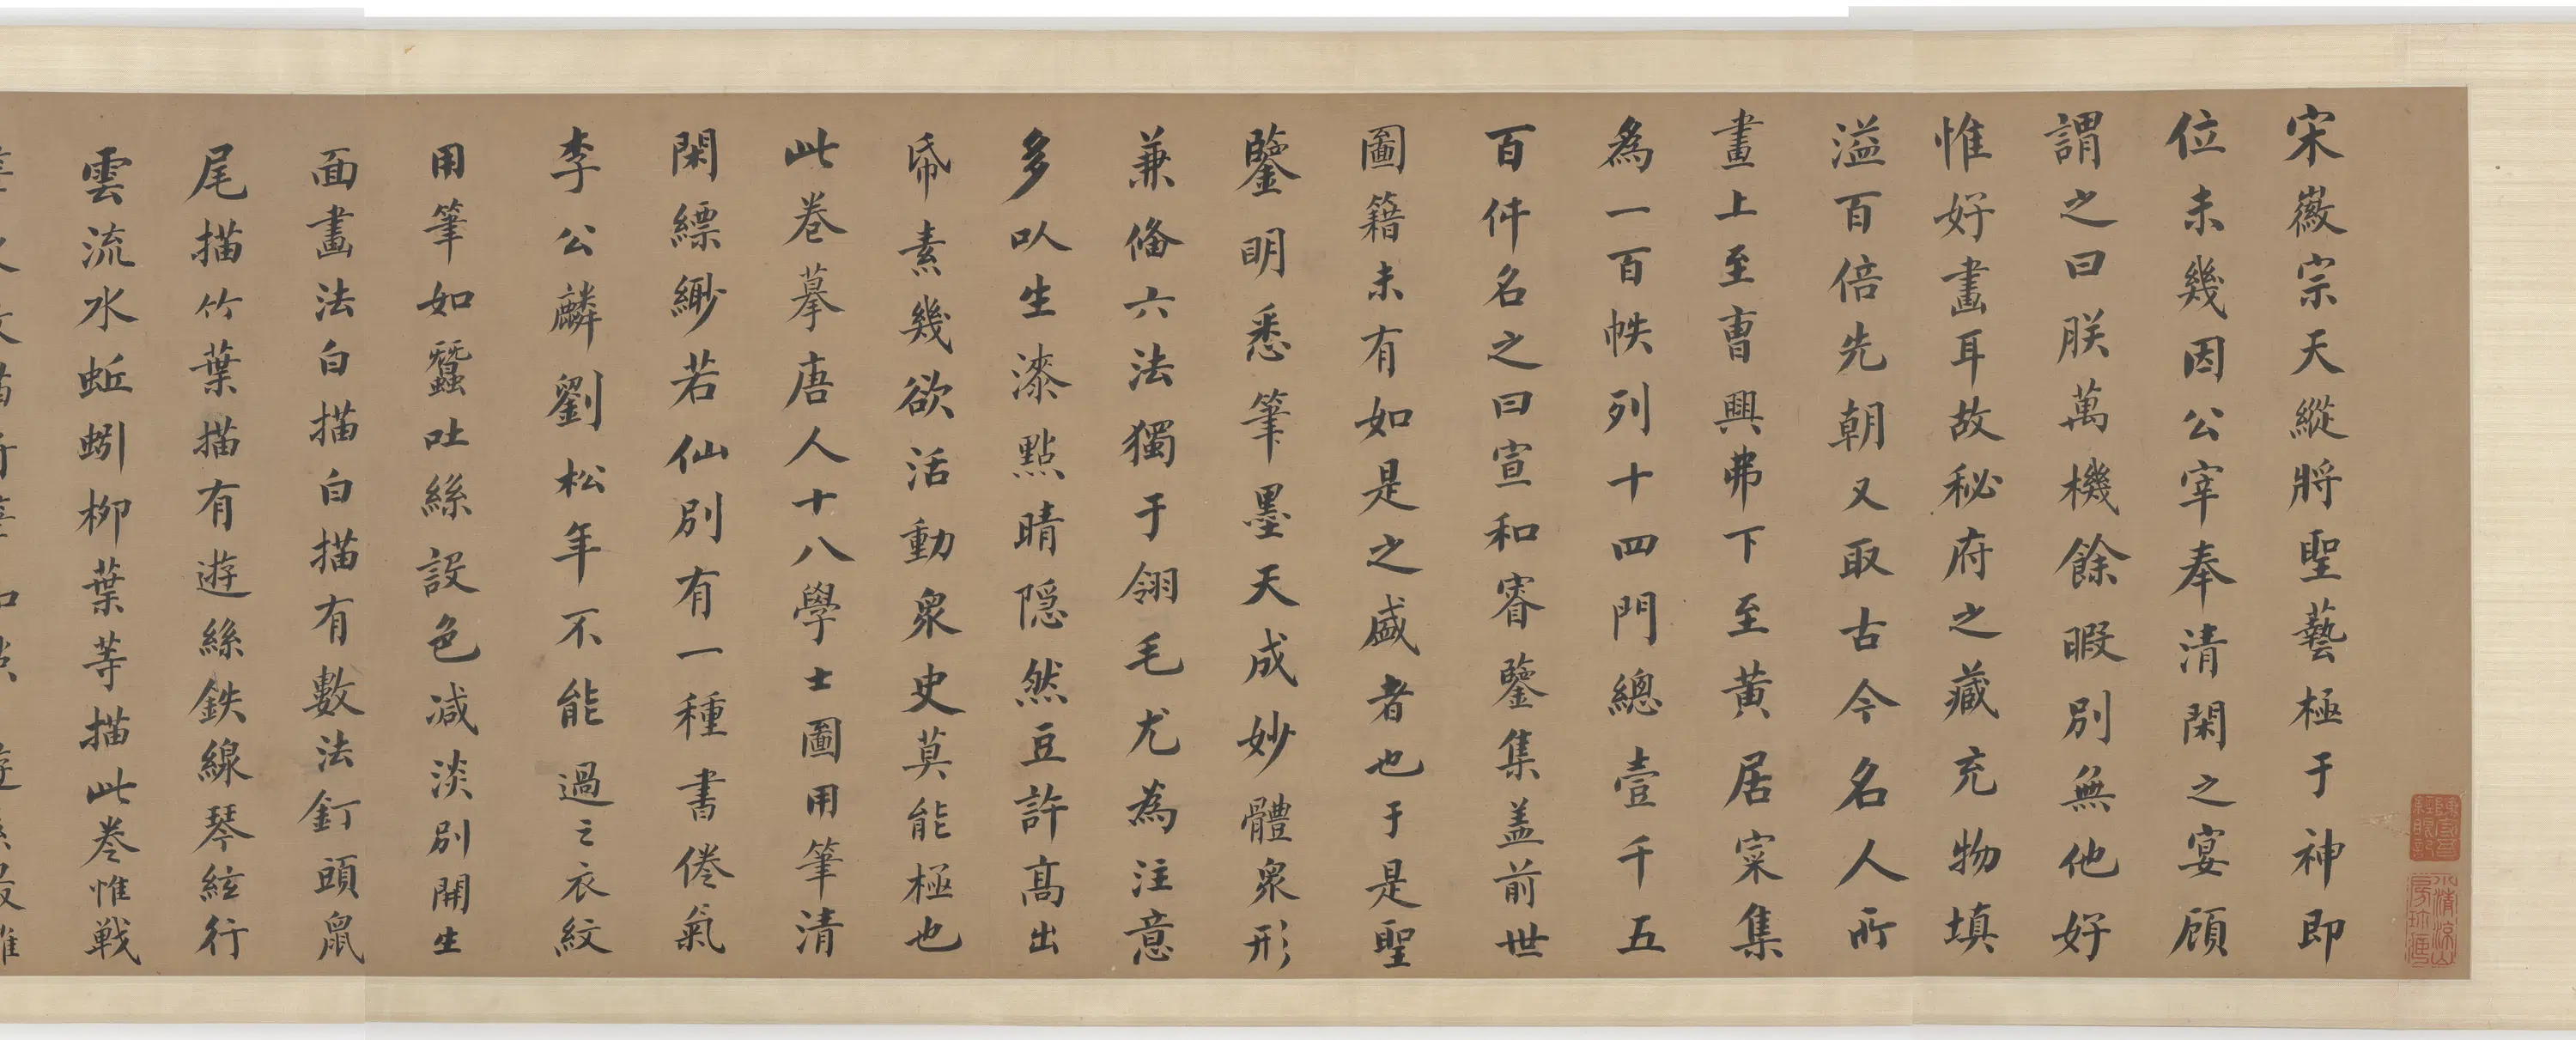 宋徽宗天縱將聖藝極于神即
位未幾因公宰奉清閑之宴顧
謂之曰朕萬機餘暇別無他好
惟好畫耳故秘府之藏充物填
溢百倍先朝又取古今名人所
畫上至曺興弗下至黄居寀集
為一百帙列十四門總壹千五
百件名之曰宣和睿鑒集盖前世
圖籍未有如是之盛者也于是聖
鑒明悉筆墨天成妙體衆形
兼俻六法獨于翎毛尤為注意
多㕥生漆點睛隠然豆許髙出
帋素幾欲活動衆史莫能極也
此卷摹唐人十八學士圖用筆清
閑縹緲若仙別有一種書倦氣
李公麟劉松年不能過之衣紋
用筆如蠶吐絲設色减淡別開生
面畫法白描白描有數法釘頭鼠
尾描竹葉描有遊絲鉄線琴絃行
雲流水蚯蚓柳葉等描此卷惟戦